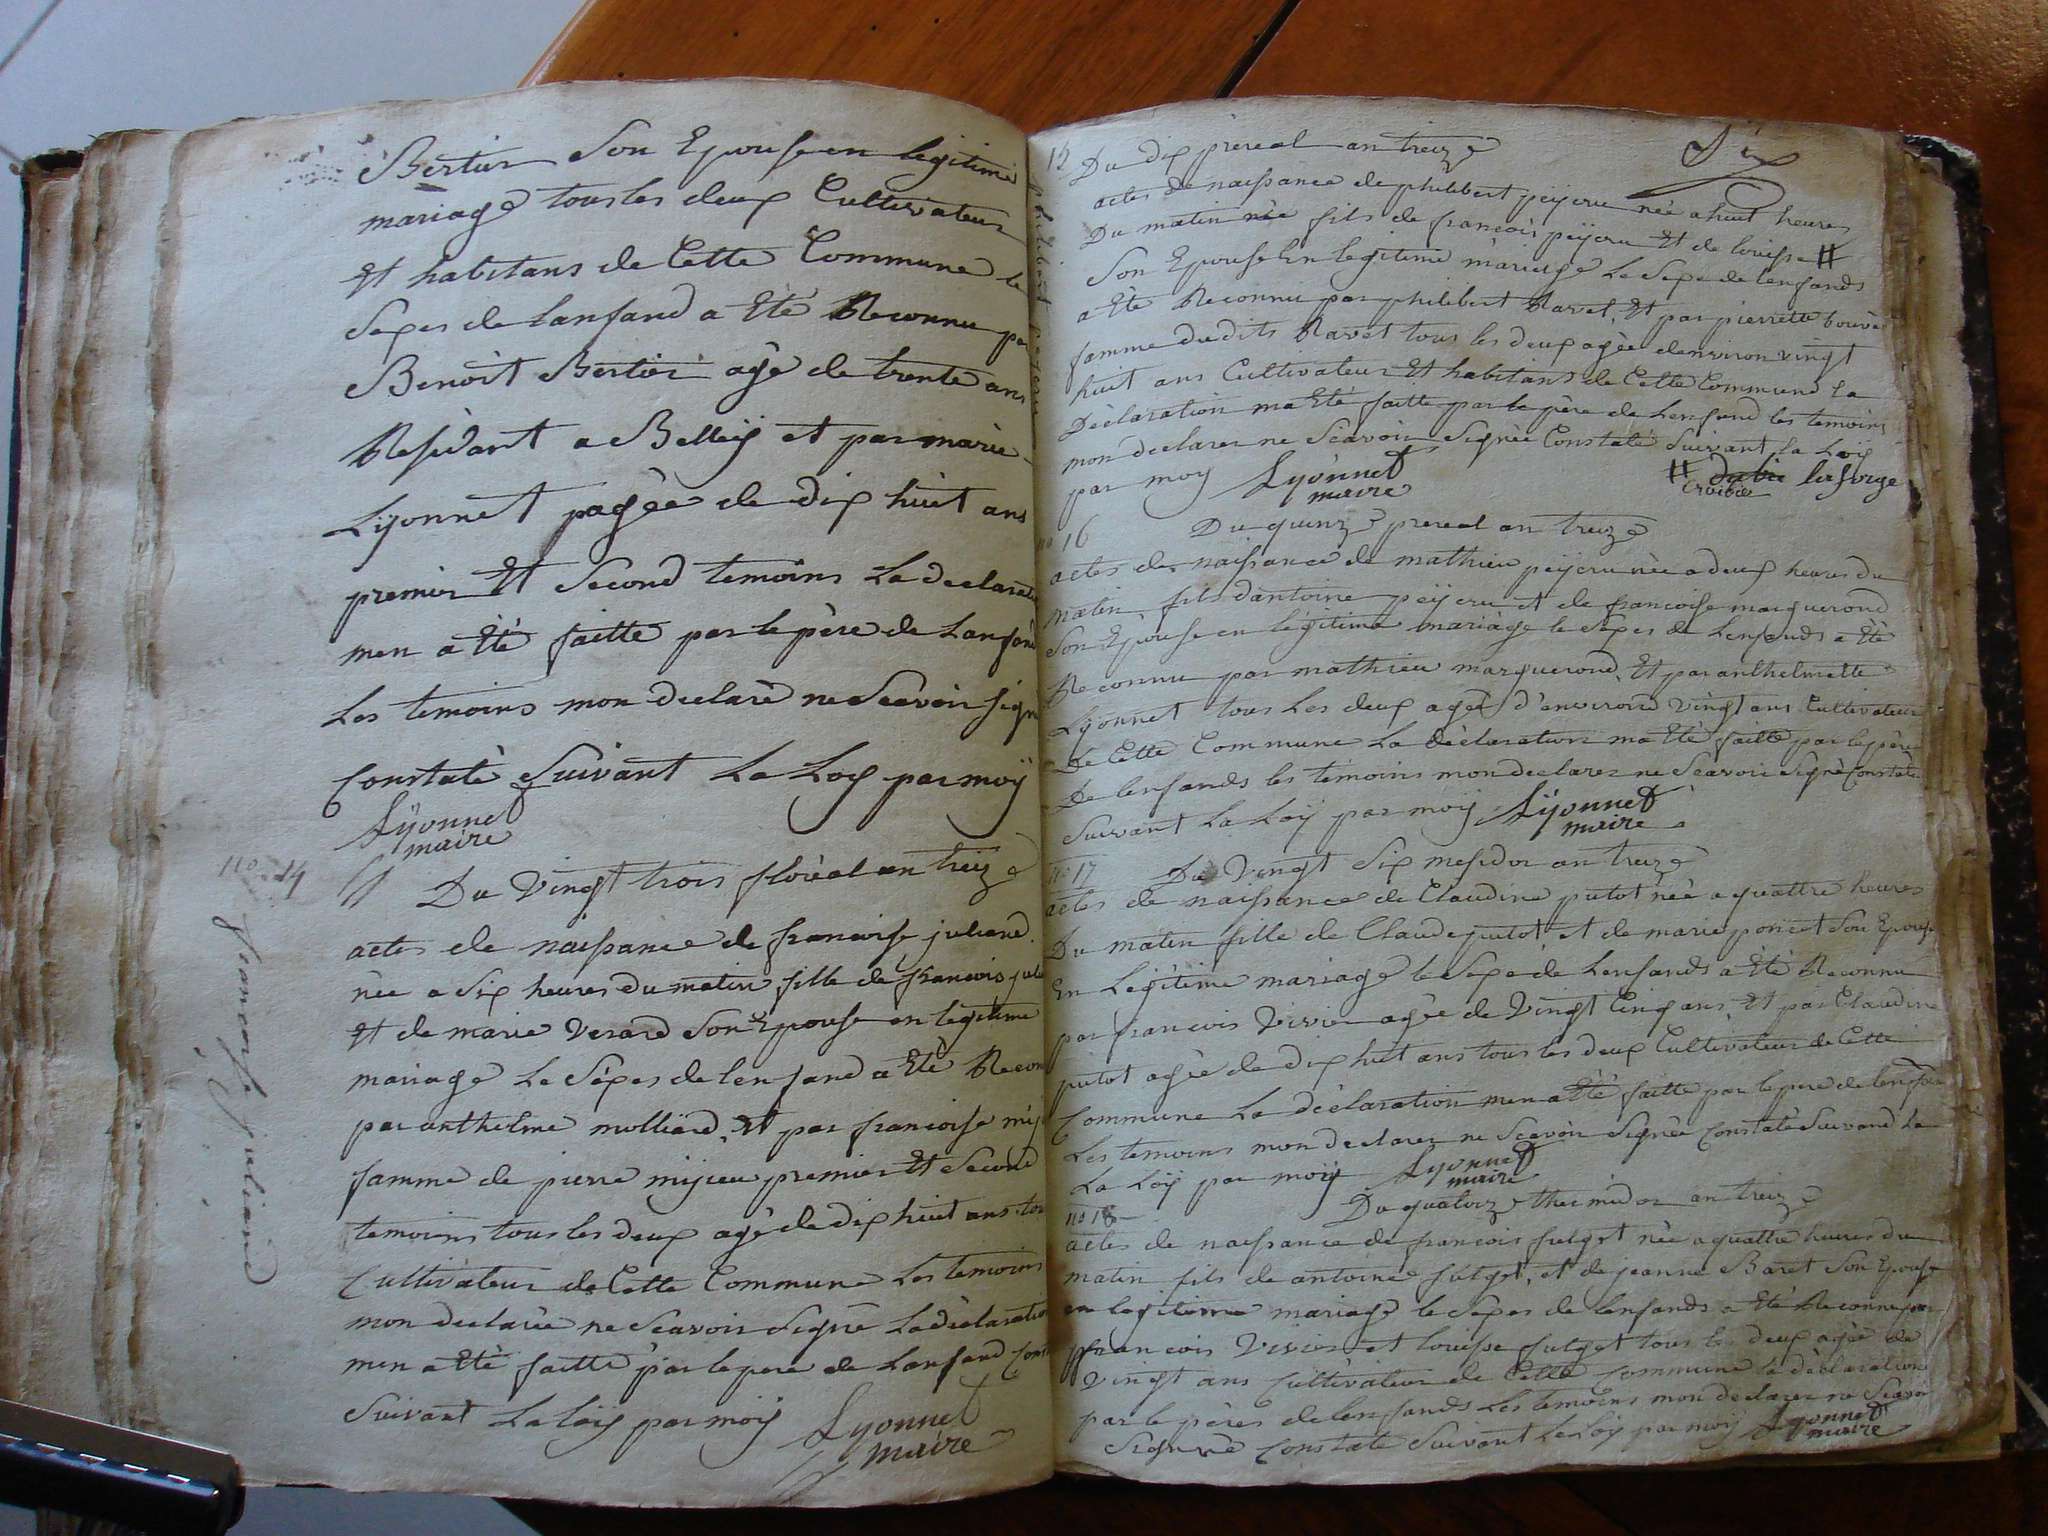 Bertier Son Epouse en legitime
mariage tous les deux Cultivateur
Et habitans de Cette Commune le
Sexes de lanfand a Eté Reconnu par
Benoit Bertier agé de trente ans
Residant a Belley et par marie
Lyonnet agée de dix huit ans
premier Et Second temoins La declaration
men a Eté faitte par le père de Lanfand
Les temoins mon declaré ne Scavoir signé
Constaté Suivant La Loy par moÿ
Lÿonnet
maire
no 14
francoise juliand
Du Vingt trois floréal an treize
actes de naissance de francoise juliand
née a Six heures du matin fille de francois
Et de marie Verard Son Epouse en legitime
mariage Le Séxes de lenfand a Eté Reconnu
par anthelme molliard, Et par francoise
famme de pierre mijieu premier Et Second
temoins tous les deux agé de dix huit ans
Cultivateur de Cette Commune Les temoins
mon declarée ne Scavoir Signé La déclaration
men a Eté faitte par le pere de Lanfand
Suivant La loÿ par moÿ Lyonnet
maire
Six
15
Du dix prereal an treize
actes de naissance de philibert peÿcru née a huit heures
Du matin née fils de francois peÿcru Et de louisse #
Son Epouse En legitime mariage Le Sexe de lenfands
a Eté Reconnu par philibert Ravet, Et par pierrette
famme dudits Ravet tous les deux agée denviron vingt
huit ans Cultivateur Et habitans de Cette Commune La
Déclaration ma Eté faitte par le père de Lenfand les temoins
mon declarer ne Scavoir Signée Constaté Suivant la Loÿ
par moÿ Lyonnet
maire
# laforge
no 16
Du quinze prereal an treize
actes de naissance de mathieu peÿcru née a deux heures du
matin fils dantoine peÿcru et de francoise marguerond
Son Epouse en légitime mariage le Séxes de Lenfands a Eté
Reconnu par mathieu marguerond, Et par anthelmette
Lyonnet tous Les deux agée d'environd Vingt ans Cultivateur
De Cette Commune La déclaration ma Eté faitte par le père
De lenfands les témoins mon declarer ne Scavoir Signé Constaté
Suivant La Loÿ par moÿ Lÿonnet
maire
no 17
Du Vingt Six mesidor an treize
actes de naissance de Claudine putot née a quattre heures
Du matin fille de Claude putot et de marie poncet Son Epouse
En Legitime mariage le Sexe de Lenfands a Eté Reconnu
par francois Vivier agée de Vingt Cinq ans, Et par Claudine
putot agée de dix huit ans tous les deux Cultivateur de Cette
Commune La déclaration men a Eté faitte par le pere de lenfan
Les temoins mon declarer ne Scavoir Signée Constaté Suivand La
La Loÿ par moÿ Lyonnet
maire
no 18
Du quatorze thermidor an treize
actes de naissance de francois futget née a quattre heures du
matin fils de antoine futget, et de jeanne Baret Son Epouse
en legitime mariage le Séxes de lenfands a Eté Reconnu par
francois Vivier et louisse futget tous les deux agée de
Vingt ans Cultivateur de Cette Commune la déclaration
par le pères de lenfands Les temoins mon declarer ne Scavoir
Signée Constaté Suivant La Loÿ par moÿ Lyonnet
maire